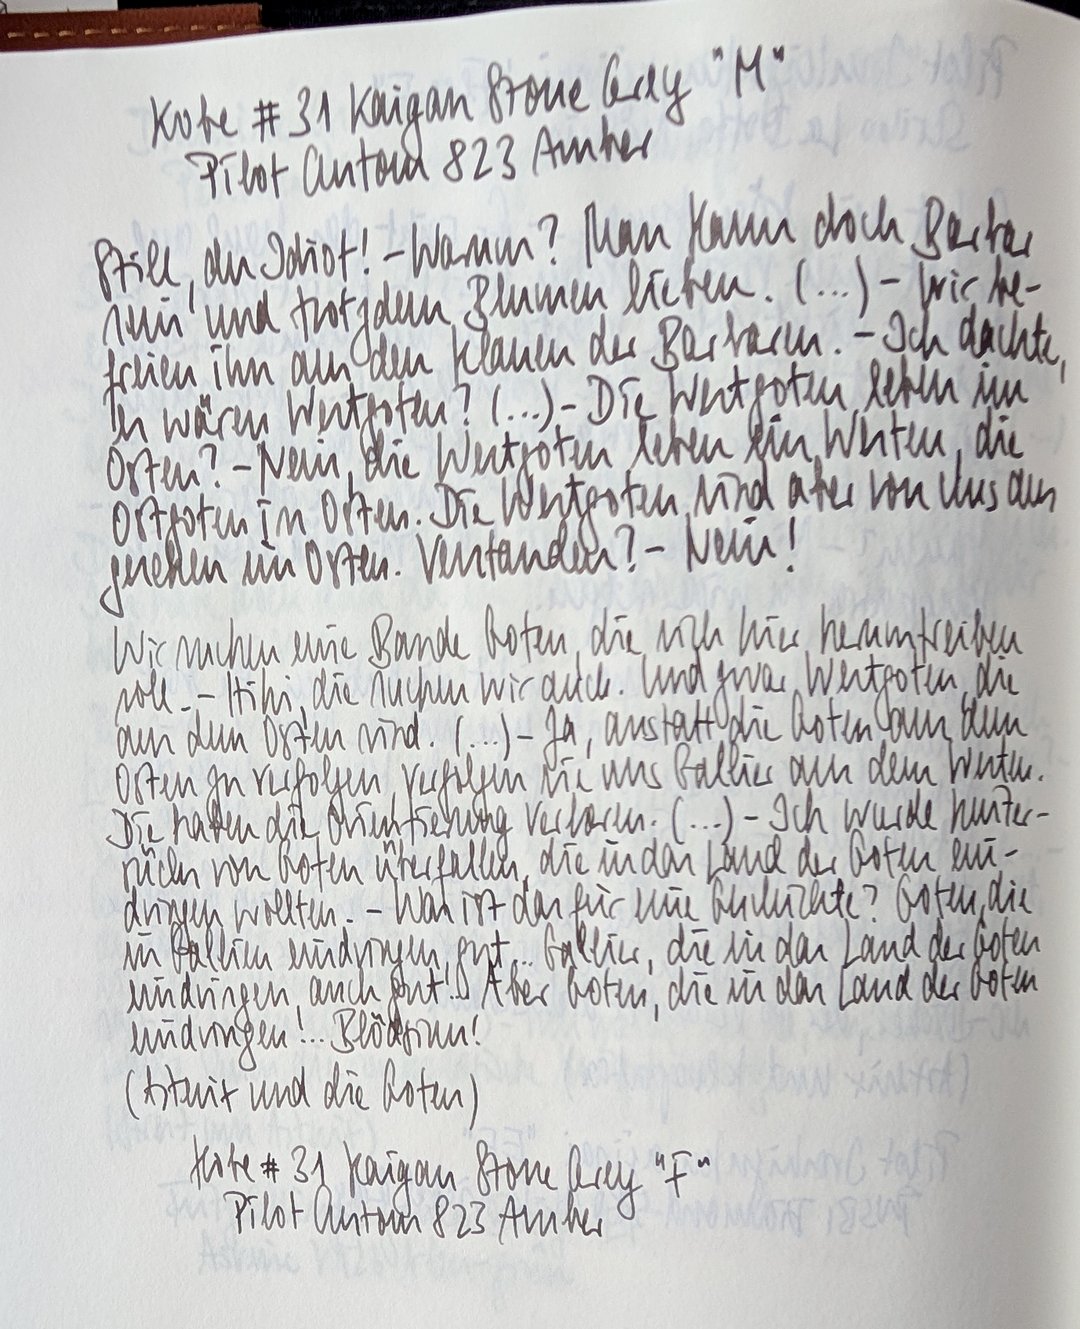 Kobe # 31 Kaigan Stone Grey "M"
Pilot Custom 823 Amber
Still, du Idiot! - Warum? Man kann doch Barbar
sein und trotzdem Blumen lieben. (...) - Wir be-
freien ihn aus den Klauen der Barbaren. - Ich dachte,
es wären Westgoten? (...) - Die Westgoten leben im
Osten? - Nein, die Westgoten leben im Westen, die
Ostgoten im Osten. Die Westgoten sind aber von uns aus
gesehen im Osten. Verstanden? - Nein!
Wir suchen eine Bande Goten, die sich hier herumtreiben
soll. - Hihi, die suchen wir auch. Und zwar Westgoten, die
aus dem Osten sind. (...) - Ja, anstatt die Goten aus dem
Osten zu verfolgen verfolgen sie uns Gallier aus dem Westen.
Die haben die Orientierung verloren. (...) - Ich wurde hinter-
rücks von Goten überfallen, die in das Land der Goten ein-
dringen wollten. - Was ist das für eine Geschichte? Goten, die
in Gallien eindringen, gut... Gallier, die in das Land der Goten
eindringen auch gut!.. Aber Goten, die in das Land der Goten
eindringen!... Blödsinn!
(Asterix und die Goten)
Kobe # 31 Kaigan Stone Grey "F"
Pilot Custom 823 Amber